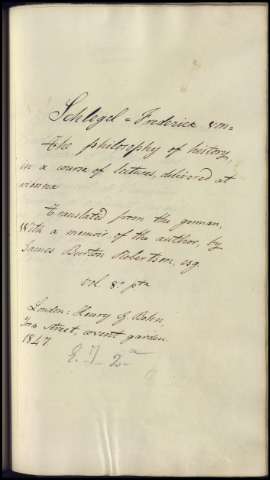 Schlegel = Frederick von
The philosophy of history,
in a course of lectures, delivered at
vienna
Translated from the german,
With a memoir of the author, by
James Burton Robertson, esq.
vol. 8°
London: Henry G Bohn,
York street, covent garden.
1847